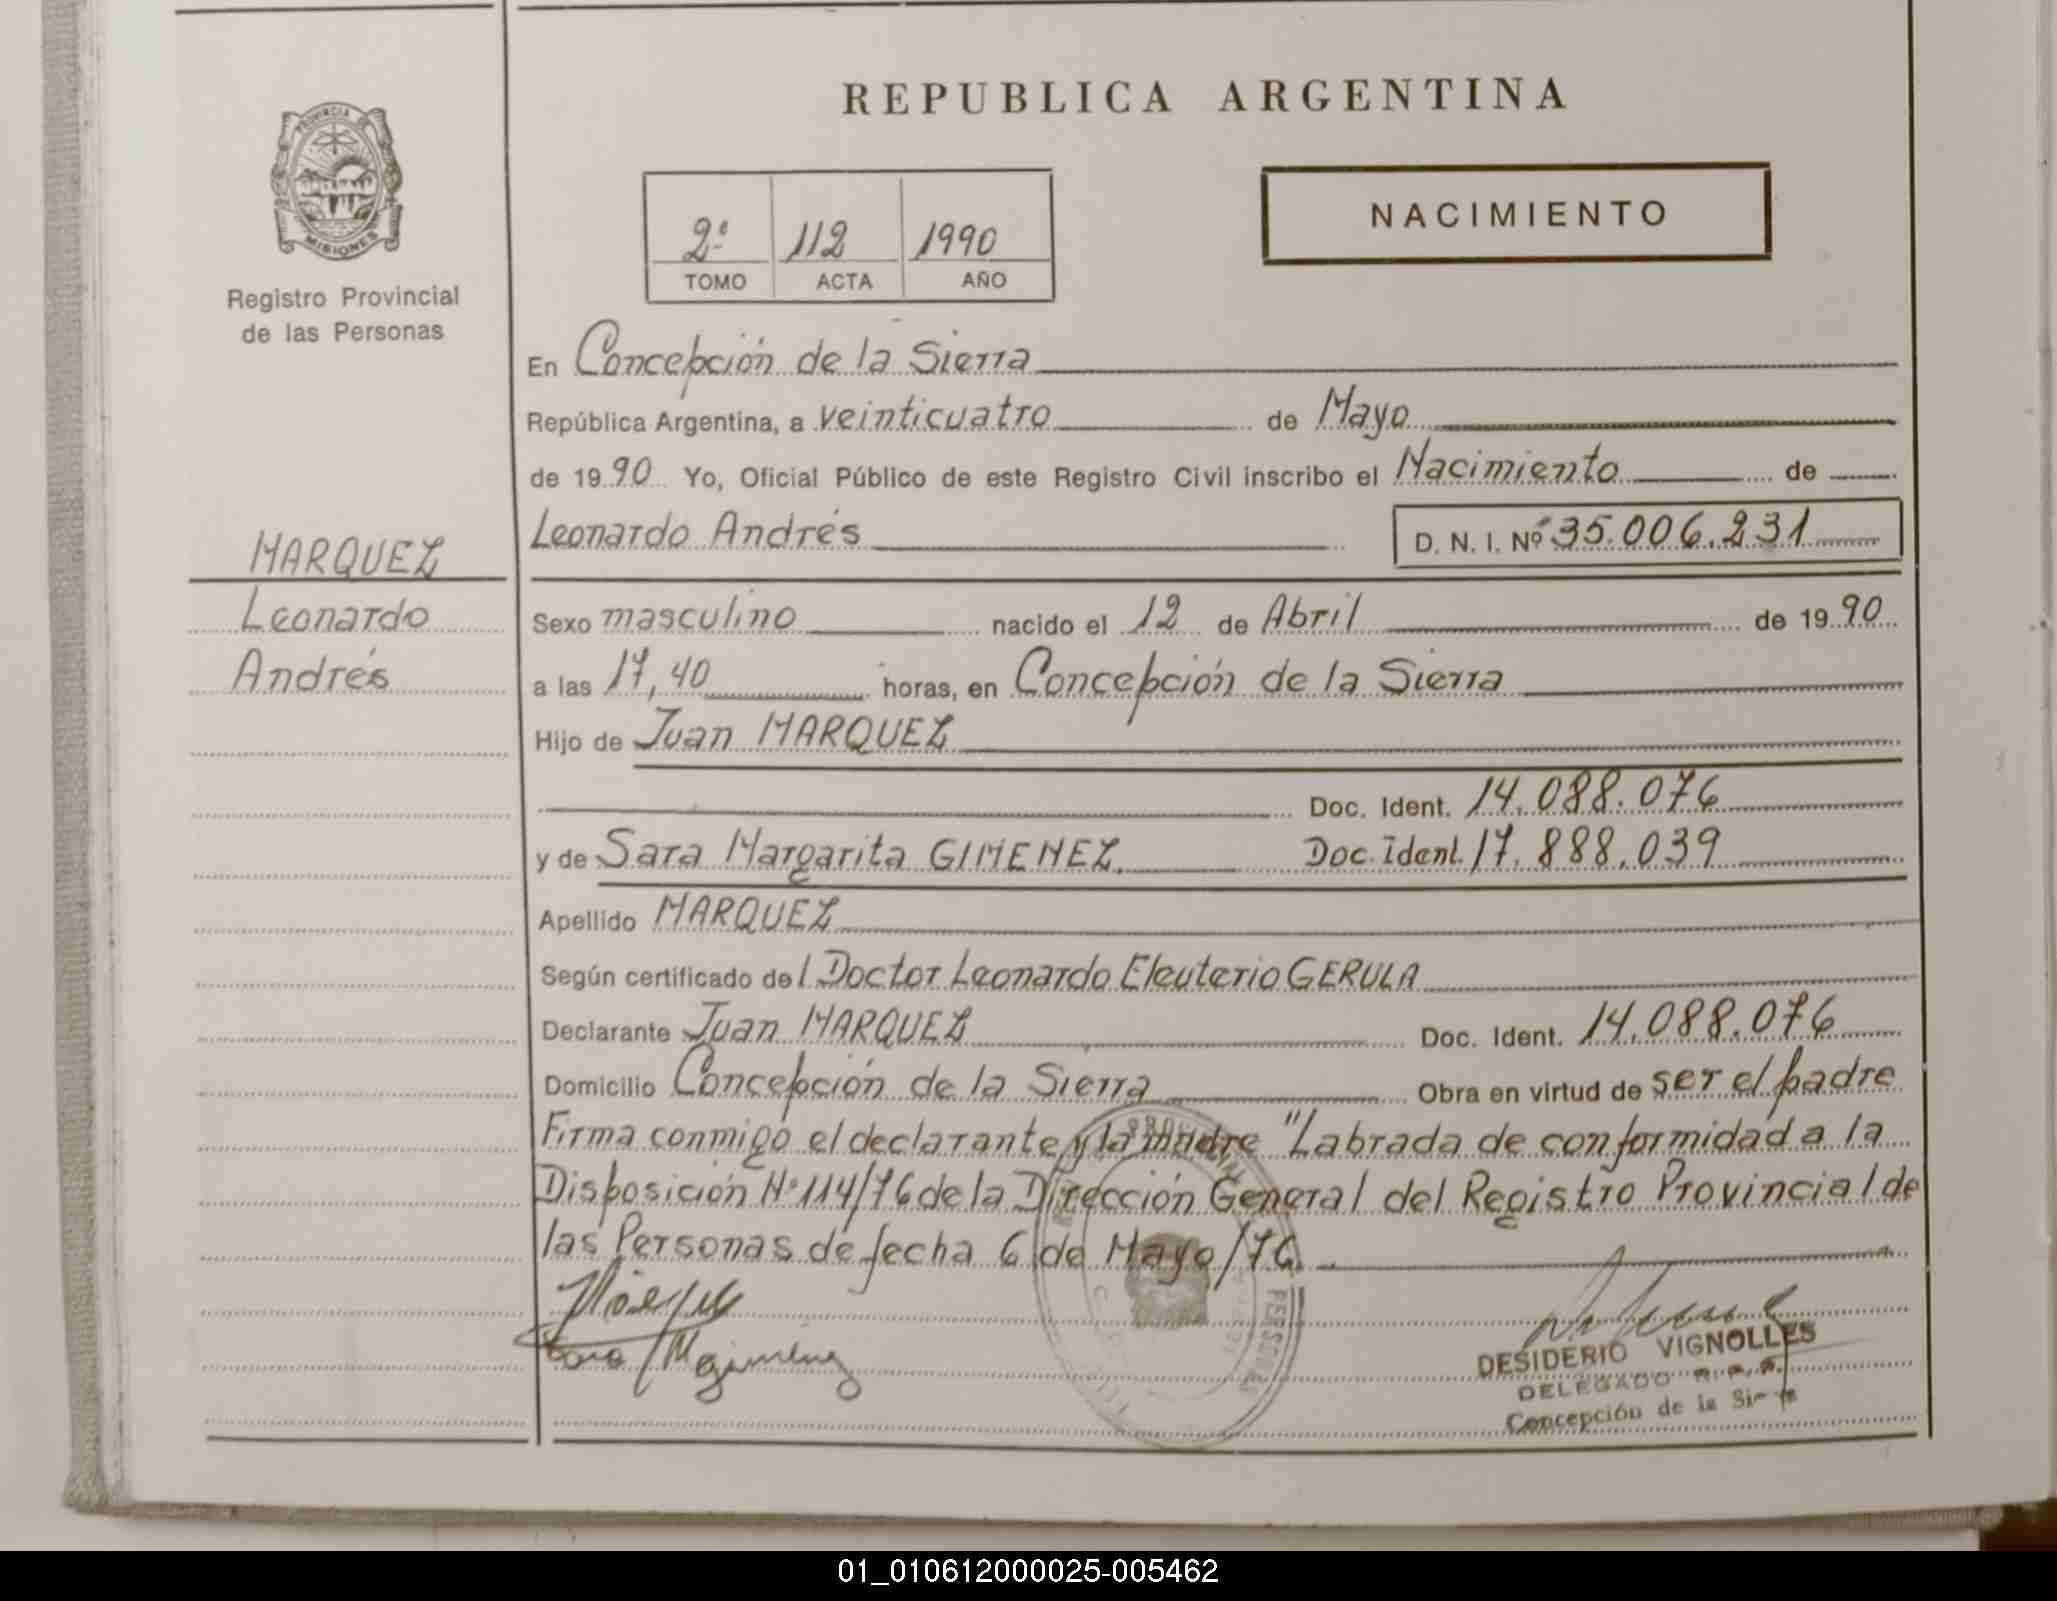 REPUBLICA ARGENTINA
PROVINCIA DE
MISIONES
Registro Provincial
de las Personas
2º 112 1990
TOMO ACTA AÑO
NACIMIENTO
En Concepción de la Sierra
República Argentina, a veinticuatro de Mayo
de 1990 Yo, Oficial Público de este Registro Civil inscribo el Nacimiento de
Leonardo Andrés D. N. I. Nº 35.006.231
MARQUEZ
Leonardo
Andrés
Sexo masculino nacido el 12 de Abril de 1990
a las 17,40 horas, en Concepción de la Sierra
Hijo de Juan MARQUEZ
Doc. Ident. 14.088.076
y de Sara Margarita GIMENEZ. Doc. Ident. 17.888.039
Apellido MARQUEZ
Según certificado del Doctor Leonardo Eleuterio GERULA
Declarante Juan MARQUEZ Doc. Ident. 14.088.076
Domicilio Concepción de la Sierra Obra en virtud de ser el padre
Firma conmigo el declarante y la madre "Labrada de conformidad a la
Disposición Nº 114/76 de la Dirección General del Registro Provincial de
las Personas de fecha 6 de Mayo/76.
DESIDERIO VIGNOLLES
DELEGADO R.P.P.
Concepción de la
01_010612000025-005462